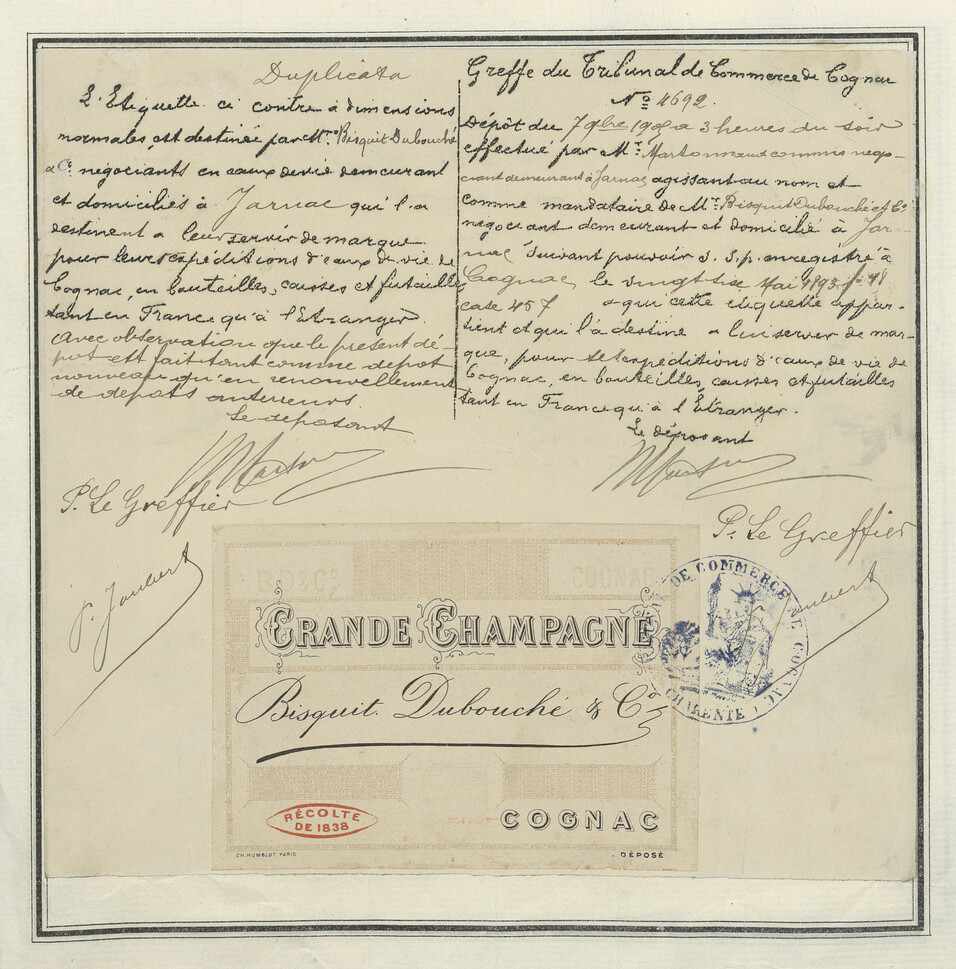 Duplicata
L'Etiquette ci contre à dimensions
normales, est destinée par Mrs. Bisquit Dubouché
& Ce. négociants en eaux de vie demeurant
et domiciliés à Jarnac qui l'a
destinent a leur servir de marque
pour leurs expéditions d'eaux de vie de
Cognac, en bouteilles, caisses et futailles
tant en France qu'à l'Etranger.
avec observation que le présent dé-
pot est fait tant comme depot
nouveau qu'en renouvellement
de depots anterieurs.
Le deposant
P. Le Greffier
P. Joubert
Greffe du Tribunal de Commerce de Cognac
No 4692.
Dépôt du 7 9bre 1905 a 3 heures du soir
effectué par Mr. Martonnaud commis nego-
ciant demeurant à Jarnac agissant au nom et
comme mandataire de Mrs. Bisquit Dubouché et Co
négociant demeurant et domicilié à Jar-
nac suivant pouvoir s. s. p. enregistré à
Cognac le vingt six Mai 1893 fo 48
case 457 a qui cette etiquette appar-
tient et qui l'à destine a lui server de mar-
que, pour ses expeditions d'eaux de vie de
Cognac, en bouteilles, caisses et futailles
tant en France qu'à l'Etranger.
Le déposant
Pr. Le Greffier
Joubert
B.D.& Co.
COGNAC
GRANDE CHAMPAGNE
Bisquit. Dubouché & Co
RÉCOLTE
DE 1838
COGNAC
CH. HUMBLOT. PARIS
DÉPOSÉ
DE COMMERCE DE COGNAC
CHARENTE